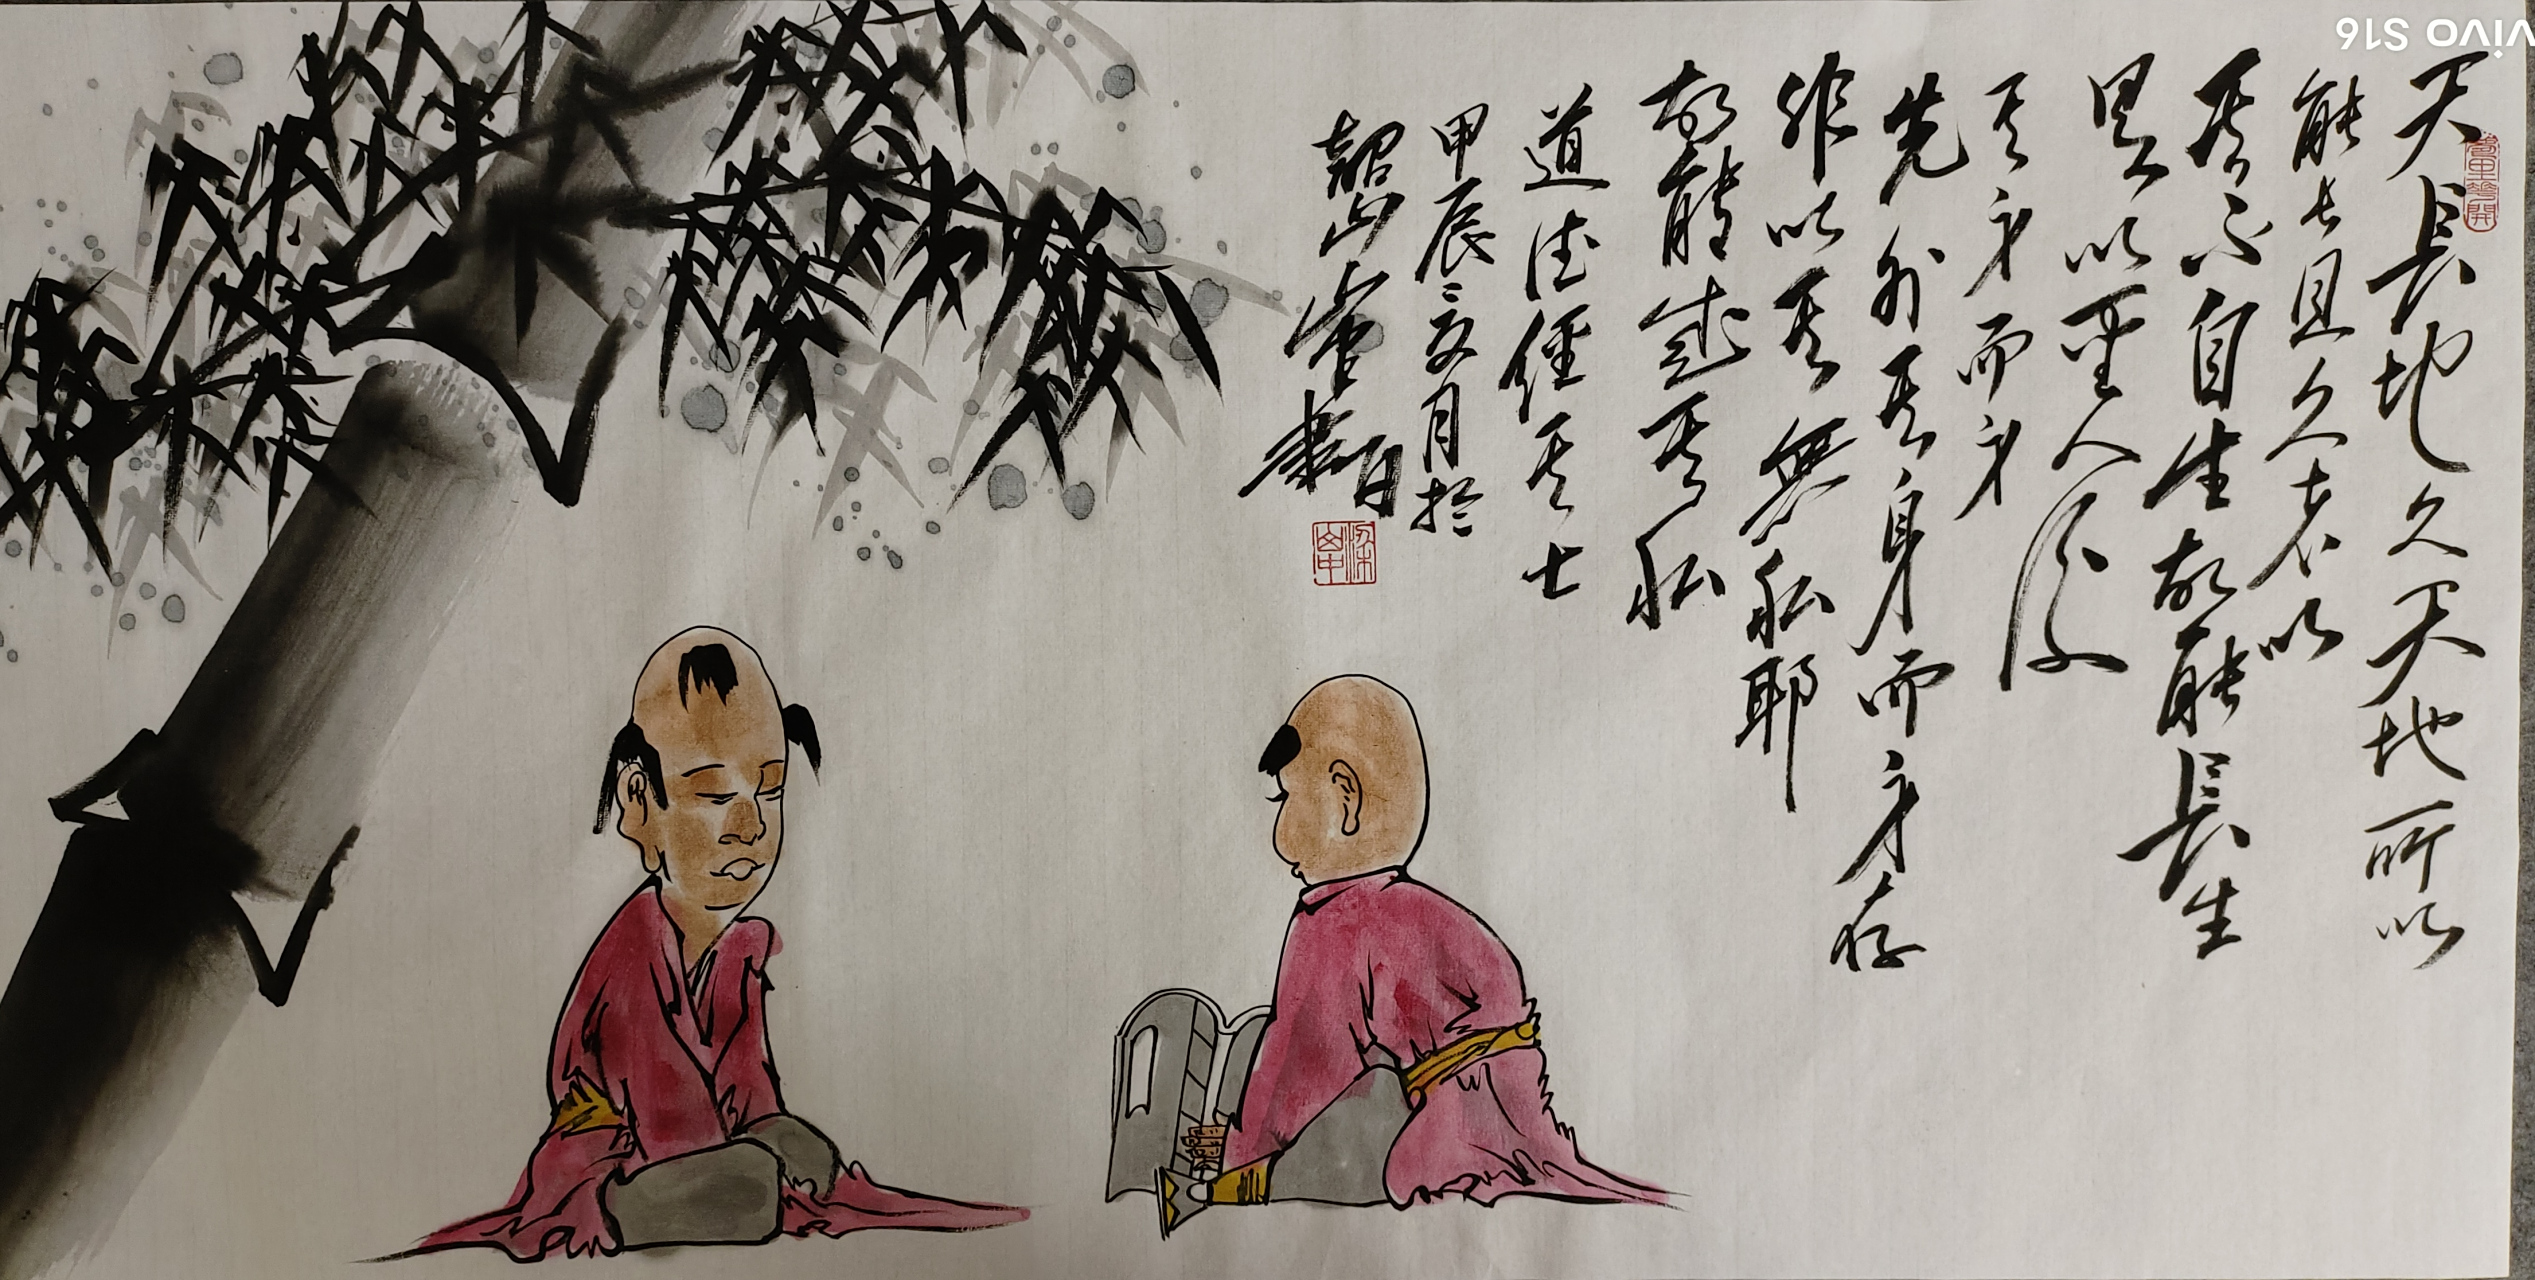 天長地久天地所以
能长且久者以
其不自生故能長生
是以聖人後
其身而身
先外其身而身存
非以其無私耶
故能成其私
道德經其七
甲辰月於
韶山書
vivo S16